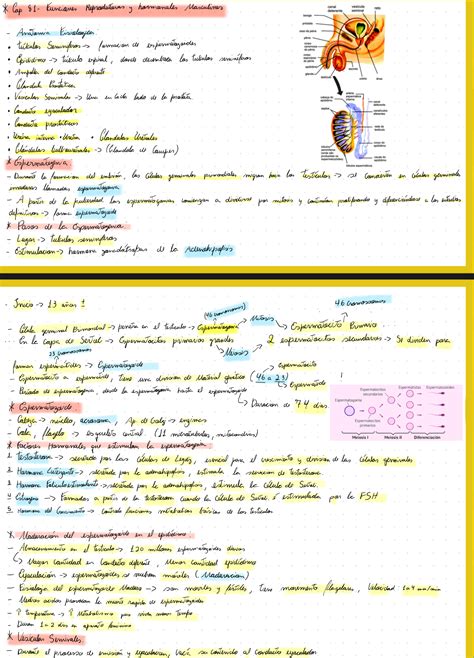 * Cap 81: Funciones Reproductoras y hormonales Masculinas
- Anatomia Fisiologica
• Túbulos Seminiferos -> formacion de espermatozoides
• Epididimo -> tubulo espiral, donde desembocan los tubulos seminiferos
• Ampolla del conducto deferente
• Glandula Prostatica
• Vesiculas Seminales -> Una en cada lado de la prostata
• Conducto eyaculador
• Conductos prostaticos
• Uretra interna • Uretra • Glandulas Uretrales
• Glándulas bulbouretrales -> (Glandula de Cowper)
* Espermatogenia
- Durante la formacion del embrión, las células germinales primordiales migran hacia los Testículos -> se convierten en células germinales
inmaduras llamadas espermatogonia
- A partir de la pubertad las espermatogonias comienzan a dividirse por mitosis y continúan proliferando y diferenciandose a los estadios
definitivos -> formar espermatozoide
* Pasos de la Espermatogenia
- Lugar -> tubulos seminiferos
- Estimulacion -> hormonas gonadotropicas de la Adenohipofisis
- Inicio -> 13 años
(46 cromosomas)
46 cromosomas
- Célula germinal Primordial -> penetra en el testiculo -> Espermatogonia
Mitosis
Espermatocito Primario
- En la capa de Sertoli -> Espermatocitos primarios grandes
Meiosis
2 espermatocitos secundarios -> Se dividen para
23 cromosomas
formar espermatides -> Espermatozoide
- Espermatocito a espermatide, tiene una division de Material genetico (46 a 23)
Espermatocito
Espermatide
- Periodo de espermatogenia, desde la espermatogonia hasta el espermatozoide
-> Duracion de 74 dias
Espermatogonia
Espermatocitos secundarios
Espermatidas
Espermatozoides
Espermatocitos primarios
Meiosis I
Meiosis II
Diferenciación
* Espermatozoide
- Cabeza -> núcleo, acrosoma, Ap. de Golgi -> enzimas
- Cola / flagelo -> esqueleto central (11 microtubulos, mitocondrias)
* Factores Hormonales que estimulan la espermatogenia
1. Testosterona -> secretada por las Células de Leydig, esencial para el crecimiento y division de las Células germinales
2. Hormona Luteinizante -> secretada por la adenohipofisis, estimula la secrecion de testosterona
3. Hormona Foliculoestimulante -> secretada por la adenohipofisis, estimula la Celula de Sertoli.
4. Estrogenos -> Formados a partir de la testosterona cuando la Célula de Sertoli es estimulada por la FSH
5. Hormona del Crecimiento -> controla funciones metabolicas basicas de los testiculos
* Maduracion del espermatozoide en el epididimo
- Almacenamiento en el testiculo -> 120 millones espermatozoides diarios
-> Mayor cantidad en conducto deferente, Menor cantidad epididimo
- Eyaculacion -> espermatozoides se vuelven moviles (Maduracion)
- Fisiologia del espermatozoide Maduro -> son moviles y fértiles, tiene movimiento flagelar, Velocidad 1 a 4 mm/min
- Medios acidos provocan la muerte rapida de espermatozoides
- ↑ Temperatura -> ↑ Metabolismo
- Duran 1-2 dias en aparato femenino
* Vesiculas Seminales
- Durante el proceso de emisión y eyaculacion, vacía su contenido al conducto eyaculador